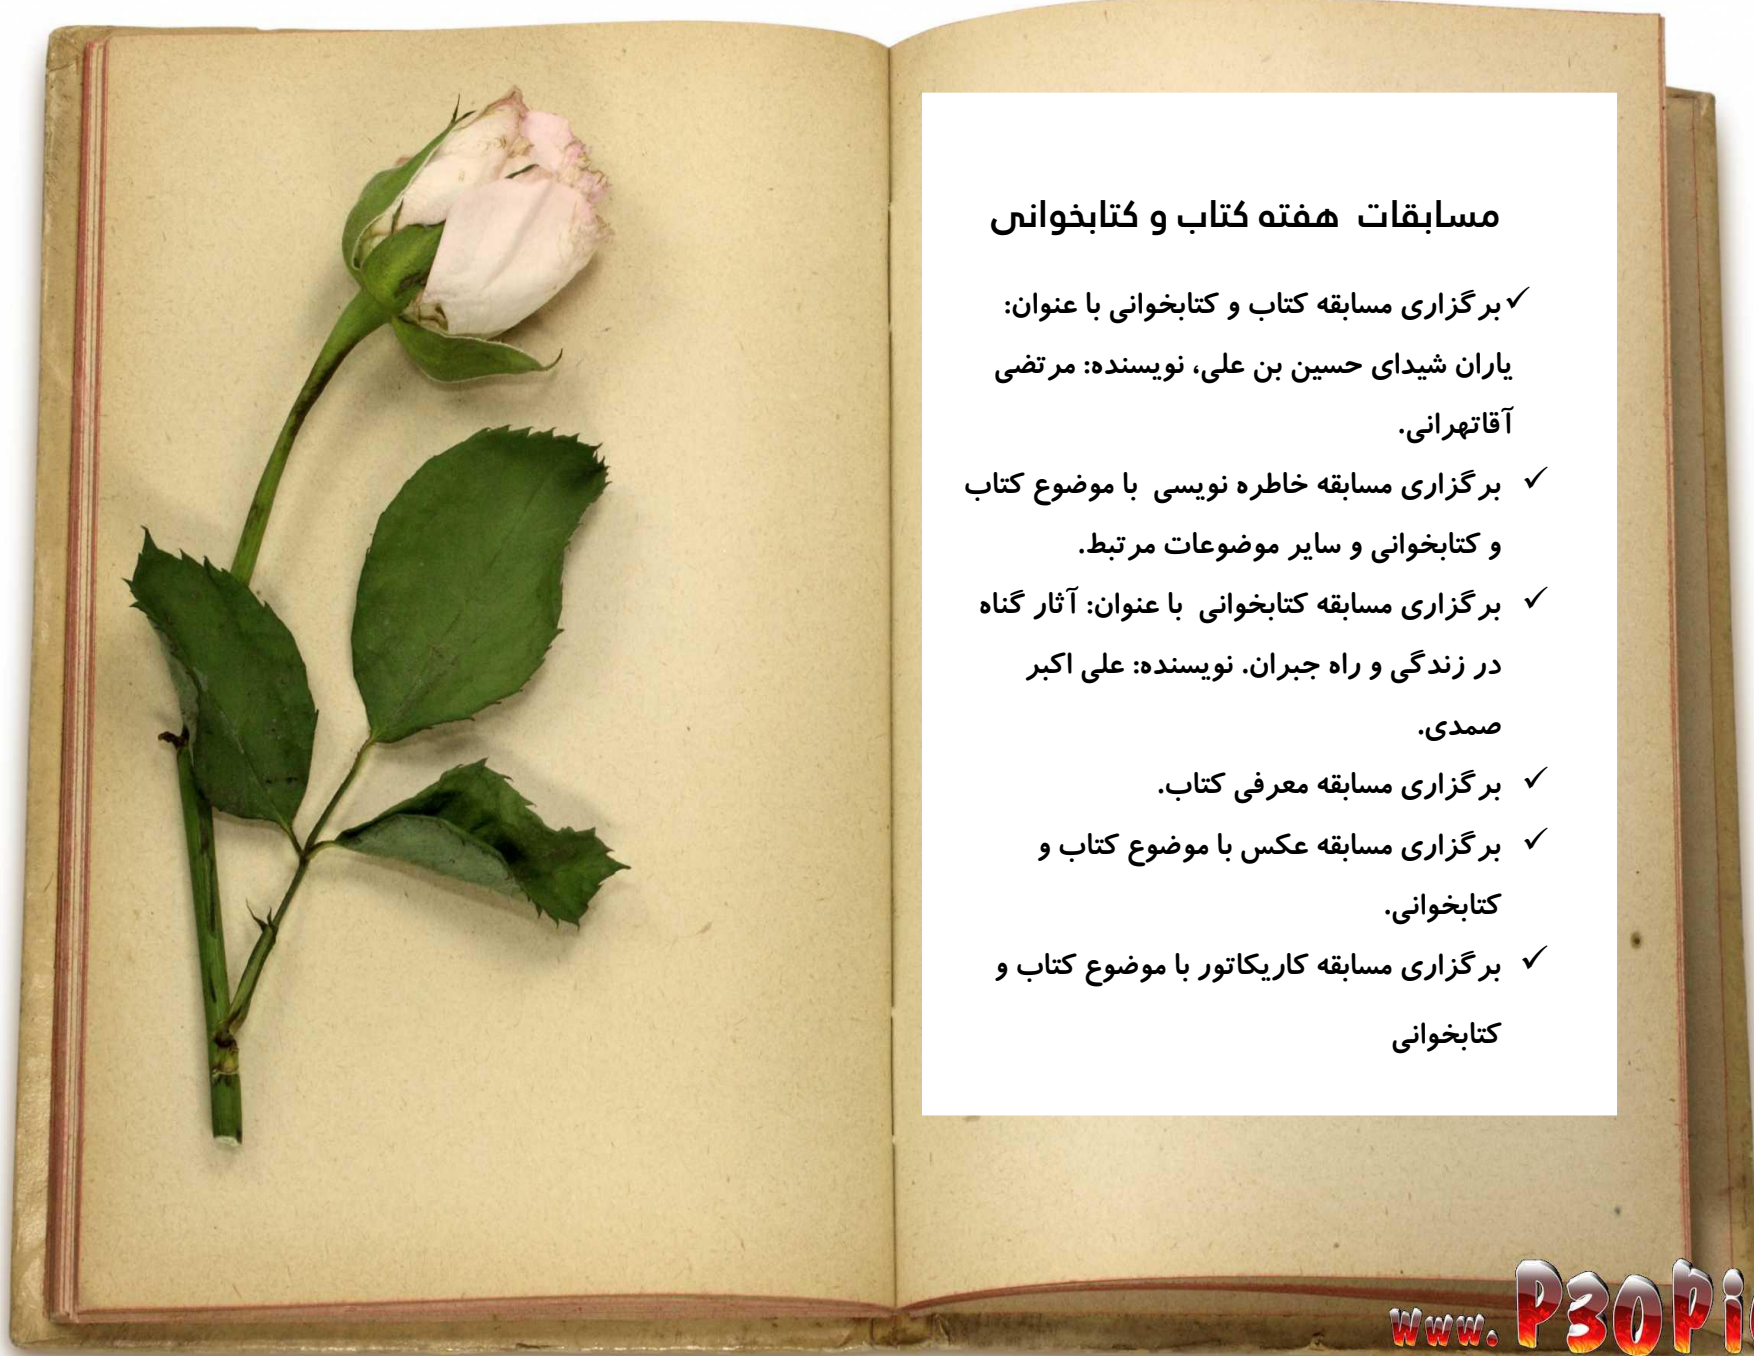 مسابقات هفته کتاب و کتابخوانی
✓ برگزاری مسابقه کتاب و کتابخوانی با عنوان:
یاران شیدای حسین بن علی، نویسنده: مرتضی
آقاتهرانی.
✓ برگزاری مسابقه خاطره نویسی با موضوع کتاب
و کتابخوانی و سایر موضوعات مرتبط.
✓ برگزاری مسابقه کتابخوانی با عنوان: آثار گناه
در زندگی و راه جبران. نویسنده: علی اکبر
صمدی.
✓ برگزاری مسابقه معرفی کتاب.
✓ برگزاری مسابقه عکس با موضوع کتاب و
کتابخوانی.
✓ برگزاری مسابقه کاریکاتور با موضوع کتاب و
کتابخوانی
www.P30Pi